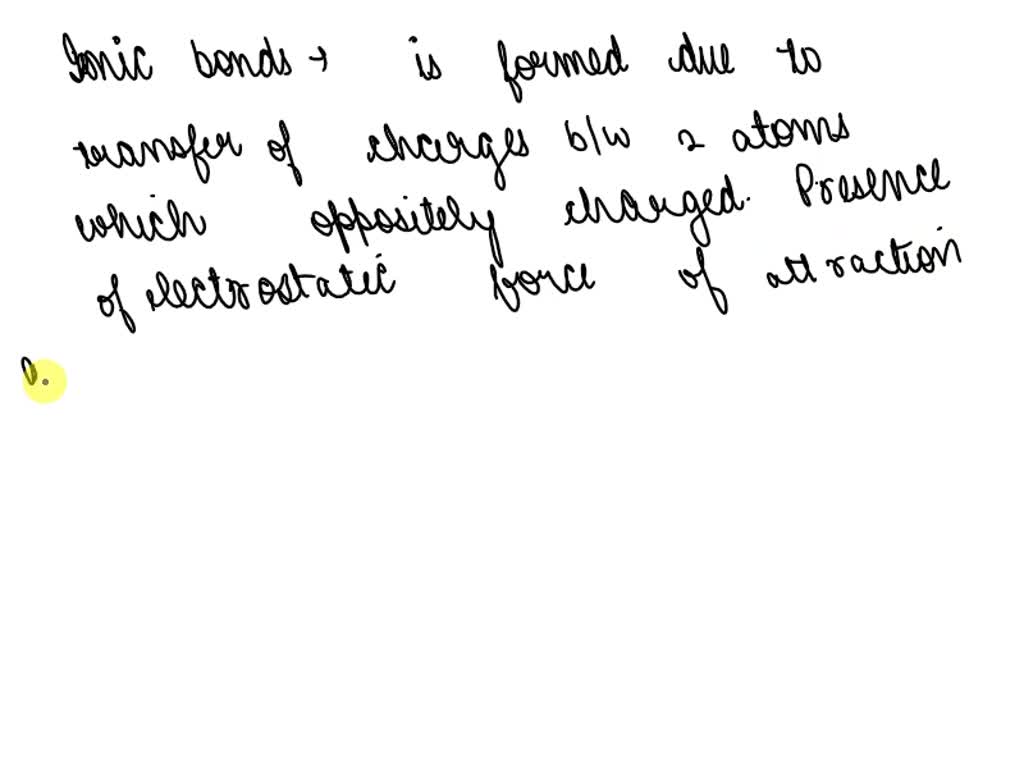 Ionic bonds → is formed due to
transfer of charges b/w 2 atoms
which oppositely charged. Presence
of electrostatic force of attraction